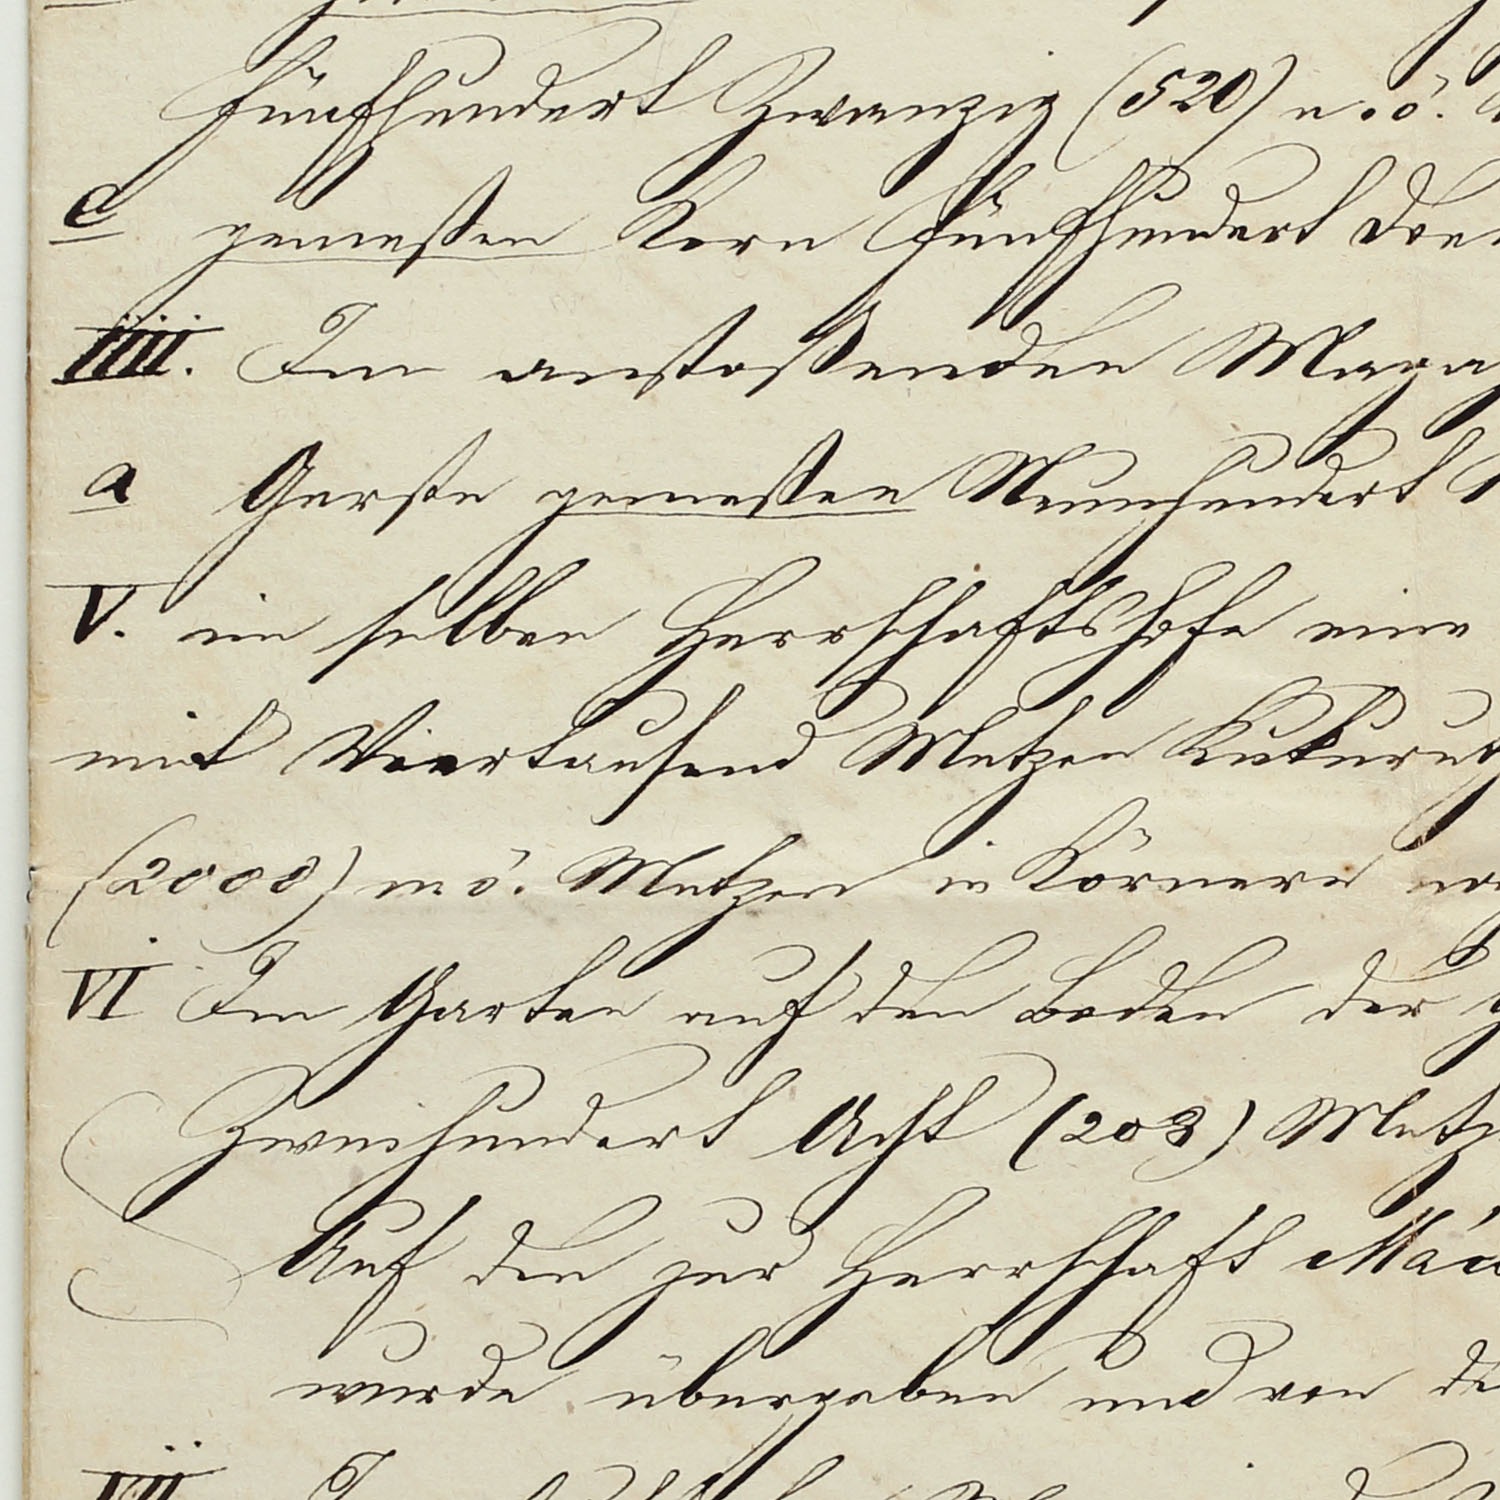 Fünfhundert Zwanzig (520) n. ö.
c gemessen Korn Fünfhundert Drei
IIII. Im anstoßenden Maga
a Gerste gemessen Neunhundert
V. im selben Herrschaftshofe eine
mit Viertausend Metzen Kukurutz
(2000) n. ö. Metzen in Körnern
VI Im Garten auf den Boden der
Zweihundert Acht (208) Metz
Auf den zur Herrschaft Mác
wurde übergeben und von di
VII